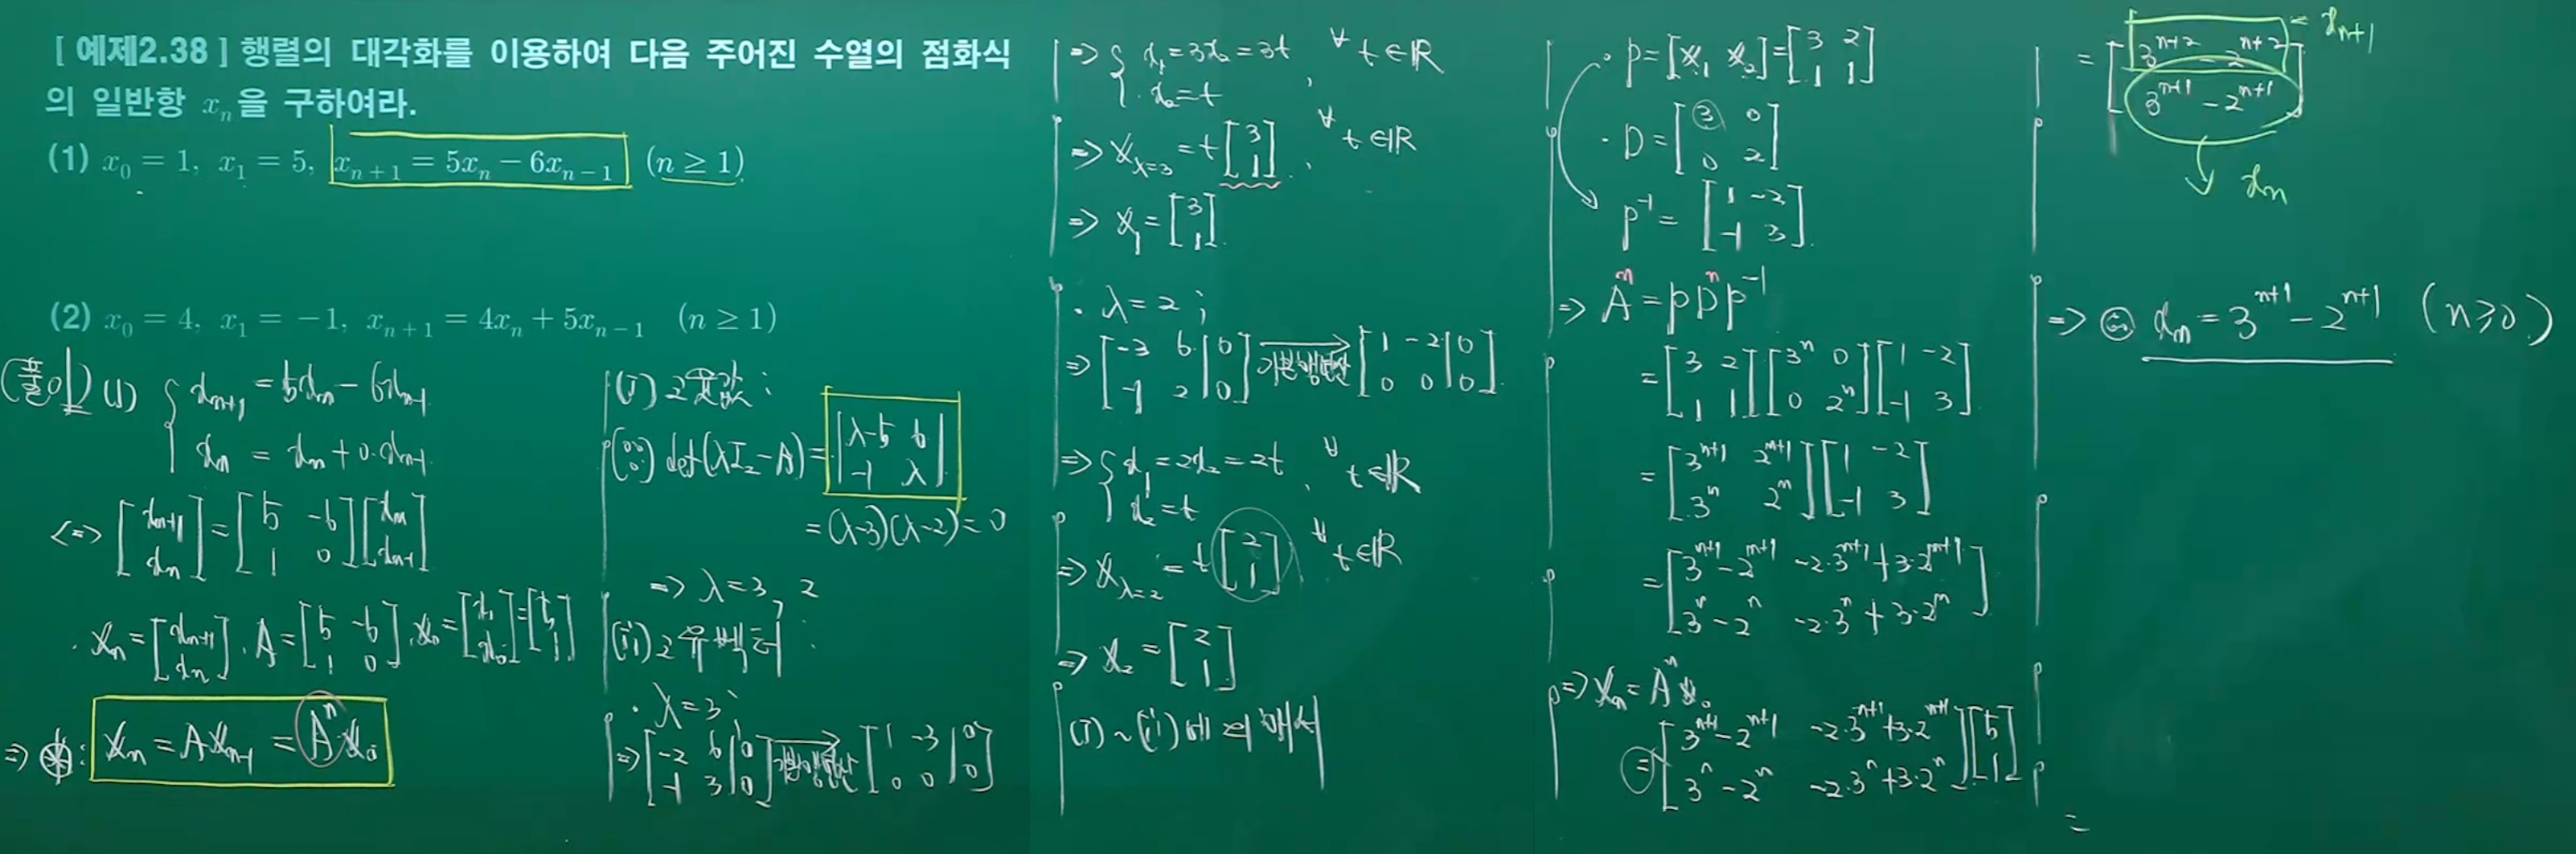 [ 예제2.38 ] 행렬의 대각화를 이용하여 다음 주어진 수열의 점화식
의 일반항 xₙ을 구하여라.
(1) x₀ = 1, x₁ = 5, xₙ₊₁ = 5xₙ − 6xₙ₋₁ (n ≥ 1)
(2) x₀ = 4, x₁ = −1, xₙ₊₁ = 4xₙ + 5xₙ₋₁ (n ≥ 1)
(풀이) (1) { xₙ₊₁ = 5xₙ − 6xₙ₋₁
xₙ = xₙ + 0·xₙ₋₁
<=> [xₙ₊₁; xₙ] = [5 −6; 1 0][xₙ; xₙ₋₁]
· Xₙ = [xₙ₊₁; xₙ], A = [5 −6; 1 0], X₀ = [x₁; x₀] = [5; 1]
=> ⊛: Xₙ = AXₙ₋₁ = AⁿX₀
(i) 고윳값 ;
(∵) det(λI₂ − A) = |λ−5 6; −1 λ|
= (λ−3)(λ−2) = 0
=> λ = 3, 2
(ii) 고유벡터 ;
· λ = 3 ;
=> [−2 6 | 0; −1 3 | 0] → 기본행연산 [1 −3 | 0; 0 0 | 0]
=> { x₁ = 3x₂ = 3t, ∀t∈ℝ
x₂ = t
=> X_λ=3 = t[3; 1], ∀t∈ℝ
=> X₁ = [3; 1]
· λ = 2 ;
=> [−3 6 | 0; −1 2 | 0] → 기본행연산 [1 −2 | 0; 0 0 | 0]
=> { x₁ = 2x₂ = 2t, ∀t∈ℝ
x₂ = t
=> X_λ=2 = t[2; 1], ∀t∈ℝ
=> X₂ = [2; 1]
(i) ~ (ii)에 의해서
· P = [X₁ X₂] = [3 2; 1 1]
· D = [3 0; 0 2]
P⁻¹ = [1 −2; −1 3]
=> Aⁿ = PDⁿP⁻¹
= [3 2; 1 1][3ⁿ 0; 0 2ⁿ][1 −2; −1 3]
= [3ⁿ⁺¹ 2ⁿ⁺¹; 3ⁿ 2ⁿ][1 −2; −1 3]
= [3ⁿ⁺¹−2ⁿ⁺¹ −2·3ⁿ⁺¹+3·2ⁿ⁺¹; 3ⁿ−2ⁿ −2·3ⁿ+3·2ⁿ]
=> Xₙ = AⁿX₀
= [3ⁿ⁺¹−2ⁿ⁺¹ −2·3ⁿ⁺¹+3·2ⁿ⁺¹; 3ⁿ−2ⁿ −2·3ⁿ+3·2ⁿ][5; 1]
=
= [3ⁿ⁺² − 2ⁿ⁺²; 3ⁿ⁺¹ − 2ⁿ⁺¹] = xₙ₊₁
xₙ
=> xₙ = 3ⁿ⁺¹ − 2ⁿ⁺¹ (n ≥ 0)